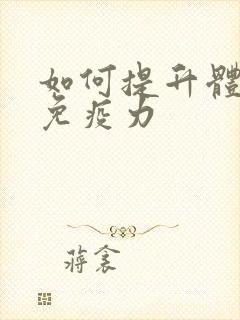 如何提升體
免疫力
蔣衾